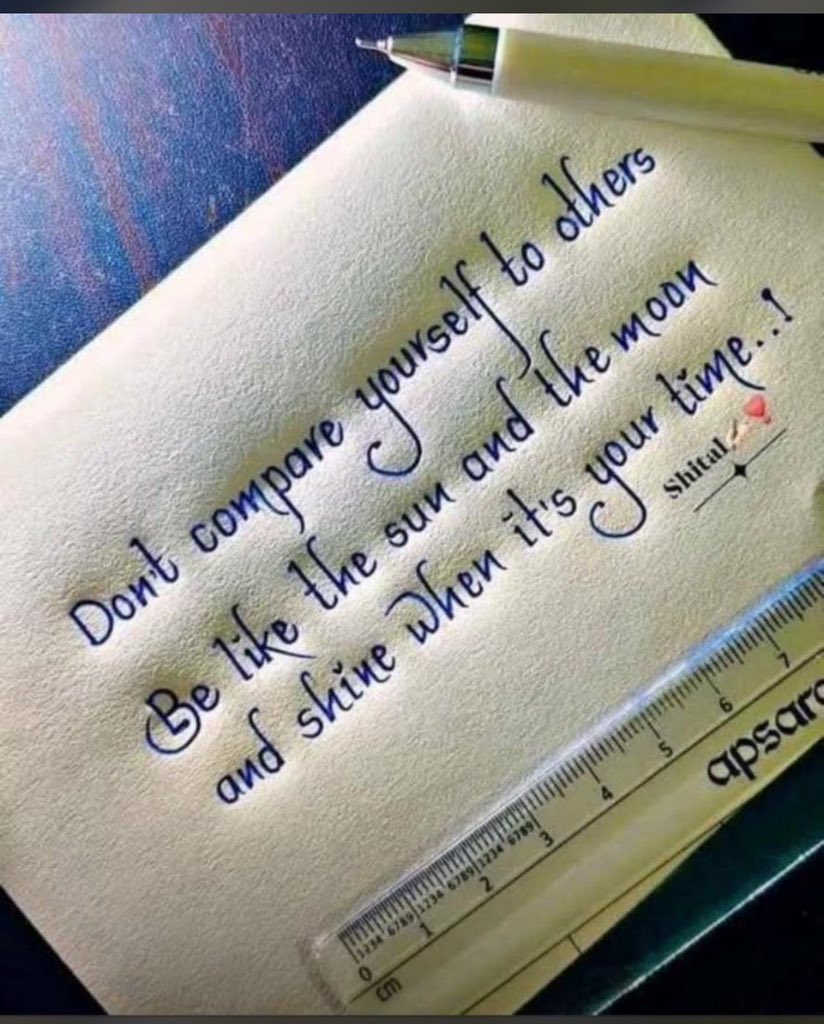 Don't compare yourself to others
Be like the sun and the moon
and shine when it's your time..!
Shital
0 1 2 3 4 5 6 7
1234 6789 1234 6789 1234 6789
cm
apsara